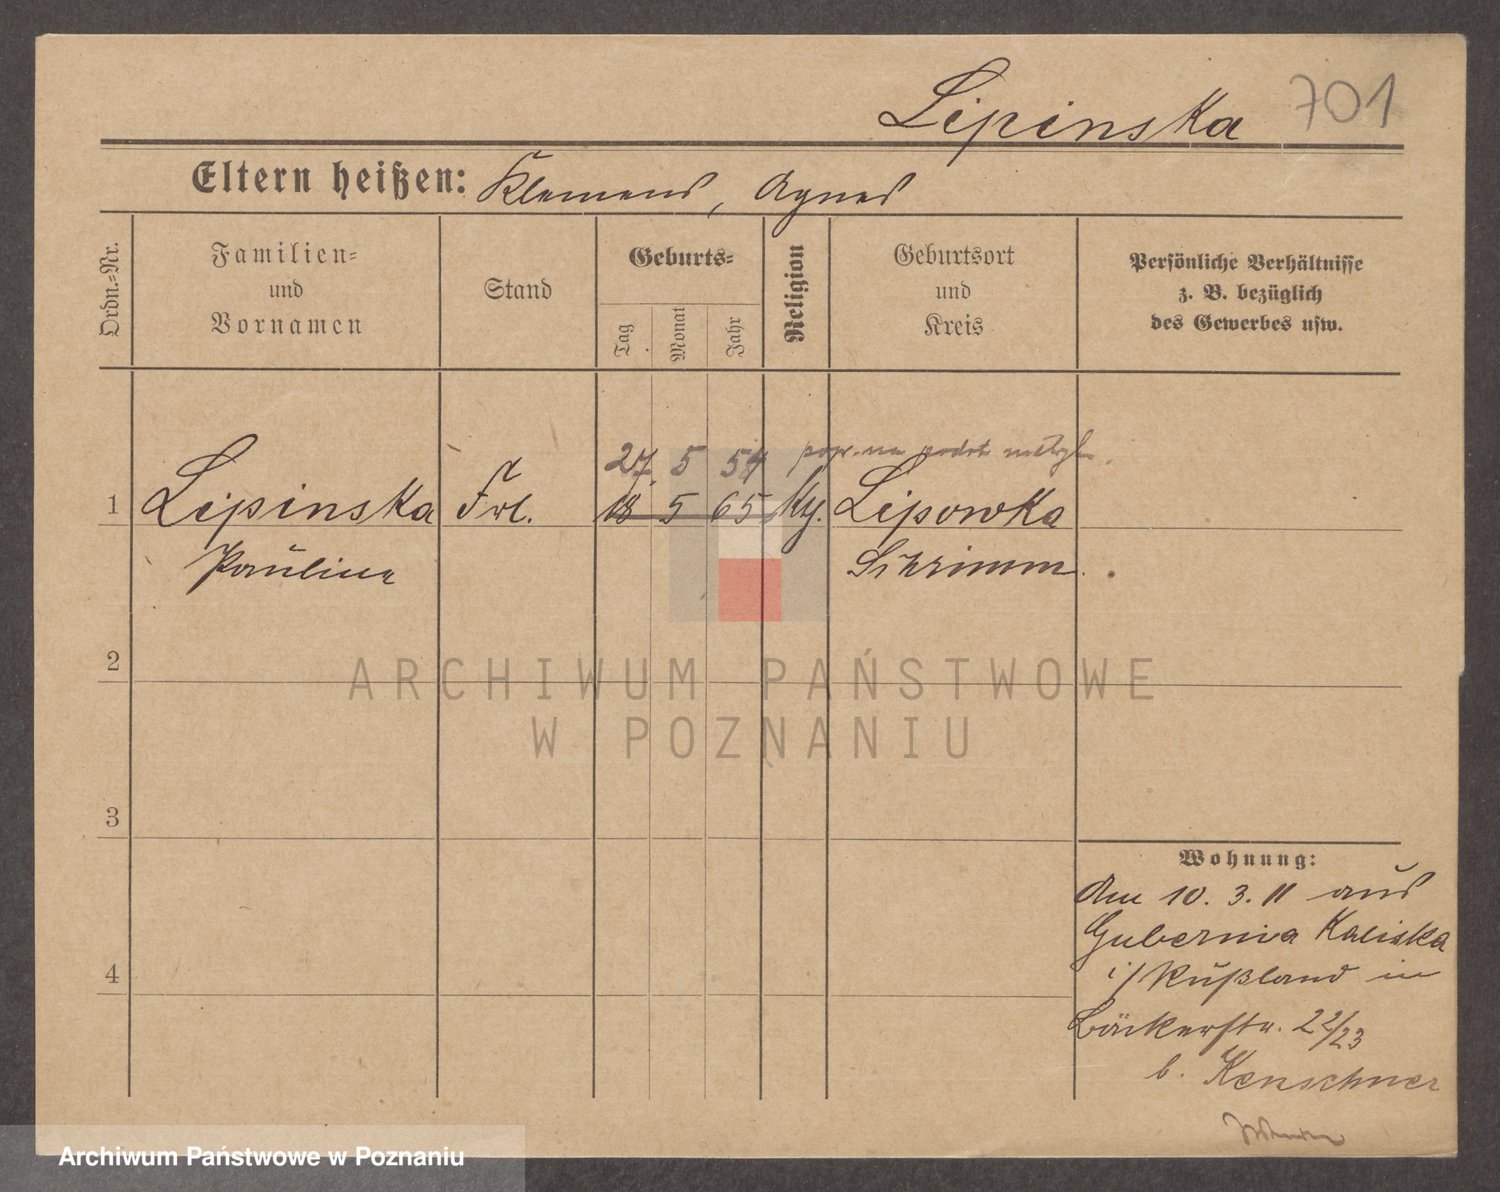 Lipinska 701
Eltern heißen: Klemens, Agnes
Ordn.=Nr.
Familien=
und
Vornamen
Stand
Geburts=
Tag
Monat
Jahr
Religion
Geburtsort
und
Kreis
Persönliche Verhältnisse
z. B. bezüglich
des Gewerbes usw.
27. 5 54
1 Lipinska Frl. 18 5 65 Kth. Lipowka
Pauline Schrimm.
2
ARCHIWUM PAŃSTWOWE
W POZNANIU
3
Wohnung:
Am 10. 3. 11 aus
Gubernia Kaliska
4
i/ Rußland in
Bäckerstr. 22/23
b. Kenschner
Archiwum Państwowe w Poznaniu